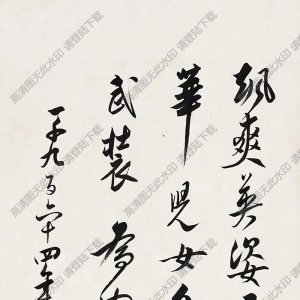 颯爽英姿
華兒女
武裝
一千九百六十四年
高清图无此水印 请登陆下载